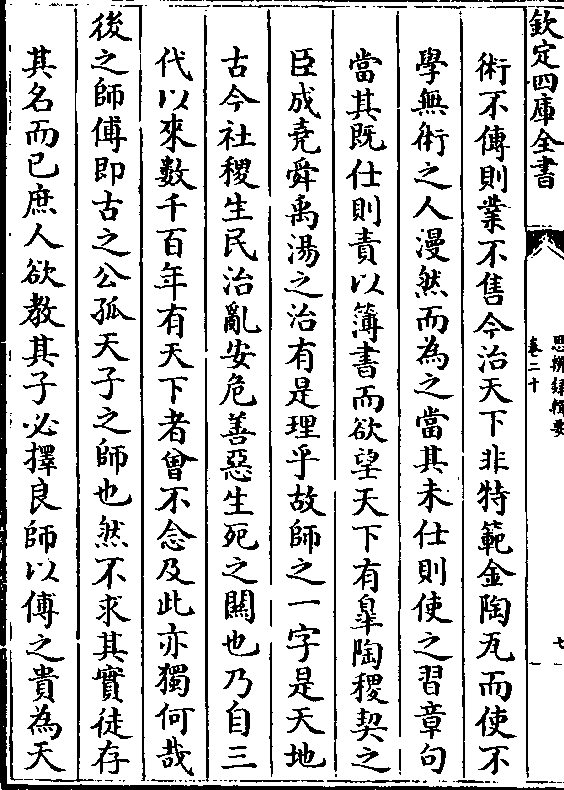 欽定四庫全書
思辨錄輯要
卷二十
七
術不傳則業不售今治天下非特範金陶瓦而使不
學無術之人漫然而為之當其未仕則使之習章句
當其既仕則責以簿書而欲望天下有臯陶稷契之
臣成堯舜禹湯之治有是理乎故師之一字是天地
古今社稷生民治亂安危善惡生死之關也乃自三
代以來數千百年有天下者曾不念及此亦獨何哉
後之師傅即古之公孤天子之師也然不求其實徒存
其名而已庶人欲教其子必擇良師以傅之貴為天